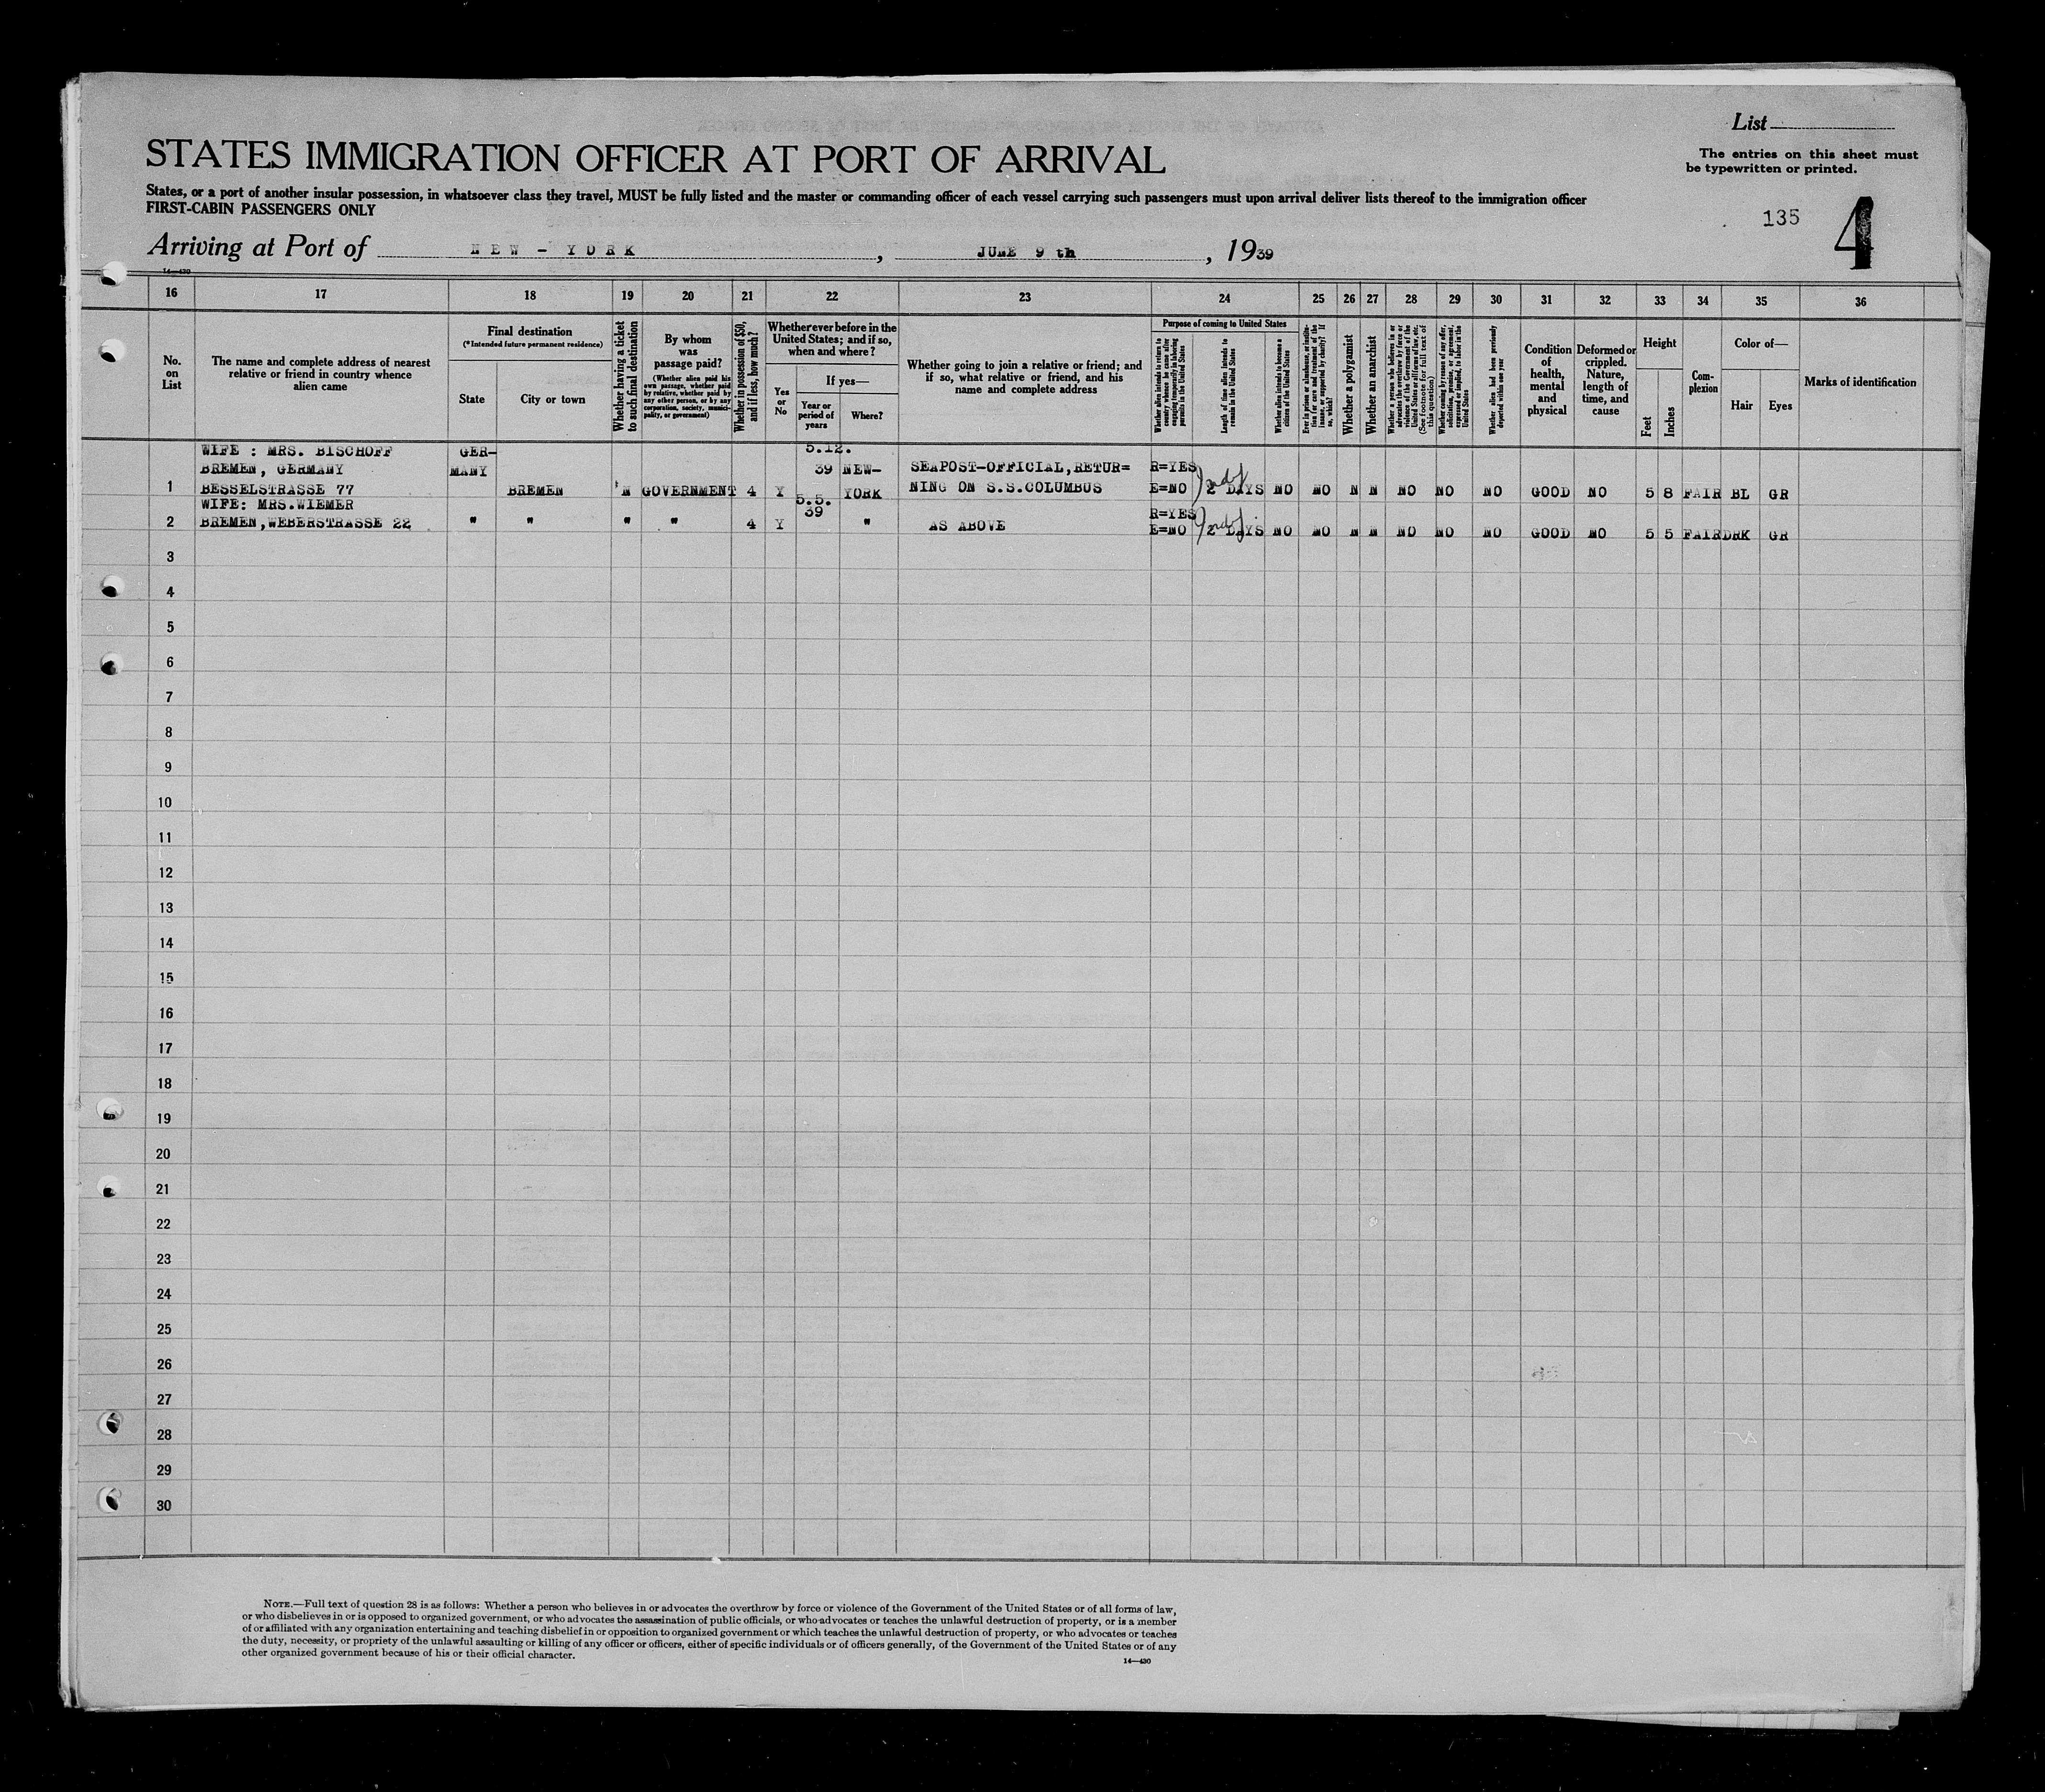 List
The entries on this sheet must
be typewritten or printed.
STATES IMMIGRATION OFFICER AT PORT OF ARRIVAL
States, or a port of another insular possession, in whatsoever class they travel, MUST be fully listed and the master or commanding officer of each vessel carrying such passengers must upon arrival deliver lists thereof to the immigration officer
FIRST-CABIN PASSENGERS ONLY
135 4
Arriving at Port of NEW - YORK , JUNE 9 th , 1939
14—430
16 17 18 19 20 21 22 23 24 25 26 27 28 29 30 31 32 33 34 35 36
No.
on
List
The name and complete address of nearest
relative or friend in country whence
alien came
Final destination
(*Intended future permanent residence)
State
City or town
Whether having a ticket
to such final destination
By whom
was
passage paid?
(Whether alien paid his
own passage, whether paid
by relative, whether paid by
any other person, or by any
corporation, society, munici-
pality, or government)
Whether in possession of $50,
and if less, how much?
Whether ever before in the
United States; and if so,
when and where?
Yes
or
No
If yes—
Year or
period of
years
Where?
Whether going to join a relative or friend; and
if so, what relative or friend, and his
name and complete address
Purpose of coming to United States
Whether alien intends to return to
country whence he came after
engaging temporarily in laboring
pursuits in the United States
Length of time alien intends to
remain in the United States
Whether alien intends to become a
citizen of the United States
Ever in prison or almshouse, or institu-
tion for care and treatment of the
insane, or supported by charity? If
so, which?
Whether a polygamist
Whether an anarchist
Whether a person who believes in or
advocates the overthrow by force or
violence of the Government of the
United States or all forms of law, etc.
(See footnote for full text of
this question)
Whether coming by reason of any offer,
solicitation, promise, or agreement,
expressed or implied, to labor in the
United States
Whether alien had been previously
deported within one year
Condition
of
health,
mental
and
physical
Deformed or
crippled.
Nature,
length of
time, and
cause
Height
Feet
Inches
Com-
plexion
Color of—
Hair
Eyes
Marks of identification
WIFE : MRS. BISCHOFF GER- 5.12.
BREMEN, GERMANY MANY 39 NEW- SEAPOST-OFFICIAL,RETUR= R=YES
1 BESSELSTRASSE 77 BREMEN N GOVERNMENT 4 Y YORK NING ON S.S.COLUMBUS E=NO 2 DAYS NO NO N N NO NO NO GOOD NO 5 8 FAIR BL GR
WIFE: MRS.WIEMER 5.5. 39 R=YES
2 BREMEN,WEBERSTRASSE 22 " " " " 4 Y " AS ABOVE E=NO 2 DAYS NO NO N N NO NO NO GOOD NO 5 5 FAIR DRK GR
3
4
5
6
7
8
9
10
11
12
13
14
15
16
17
18
19
20
21
22
23
24
25
26
27
28
29
30
NOTE.—Full text of question 28 is as follows: Whether a person who believes in or advocates the overthrow by force or violence of the Government of the United States or of all forms of law,
or who disbelieves in or is opposed to organized government, or who advocates the assassination of public officials, or who advocates or teaches the unlawful destruction of property, or is a member
of or affiliated with any organization entertaining and teaching disbelief in or opposition to organized government or which teaches the unlawful destruction of property, or who advocates or teaches
the duty, necessity, or propriety of the unlawful assaulting or killing of any officer or officers, either of specific individuals or of officers generally, of the Government of the United States or of any
other organized government because of his or their official character.
14—430